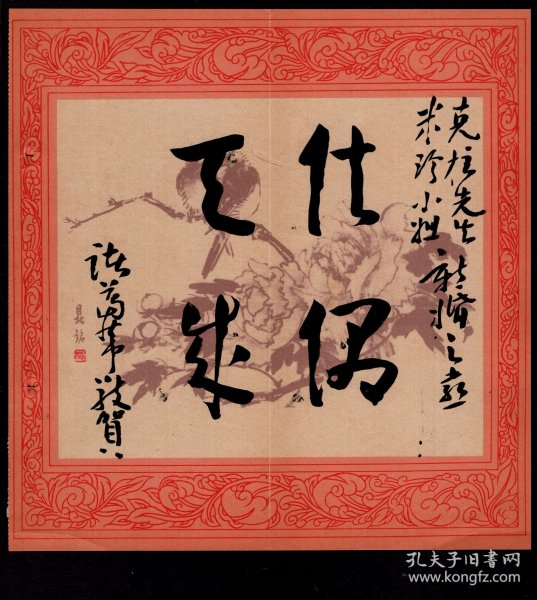 先生
珍小姐 新婚之喜
佳偶
天成
諸葛華敬賀
孔夫子旧书网
www.kongfz.com